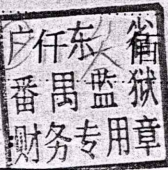 广东省
番禺监狱
财务专用章